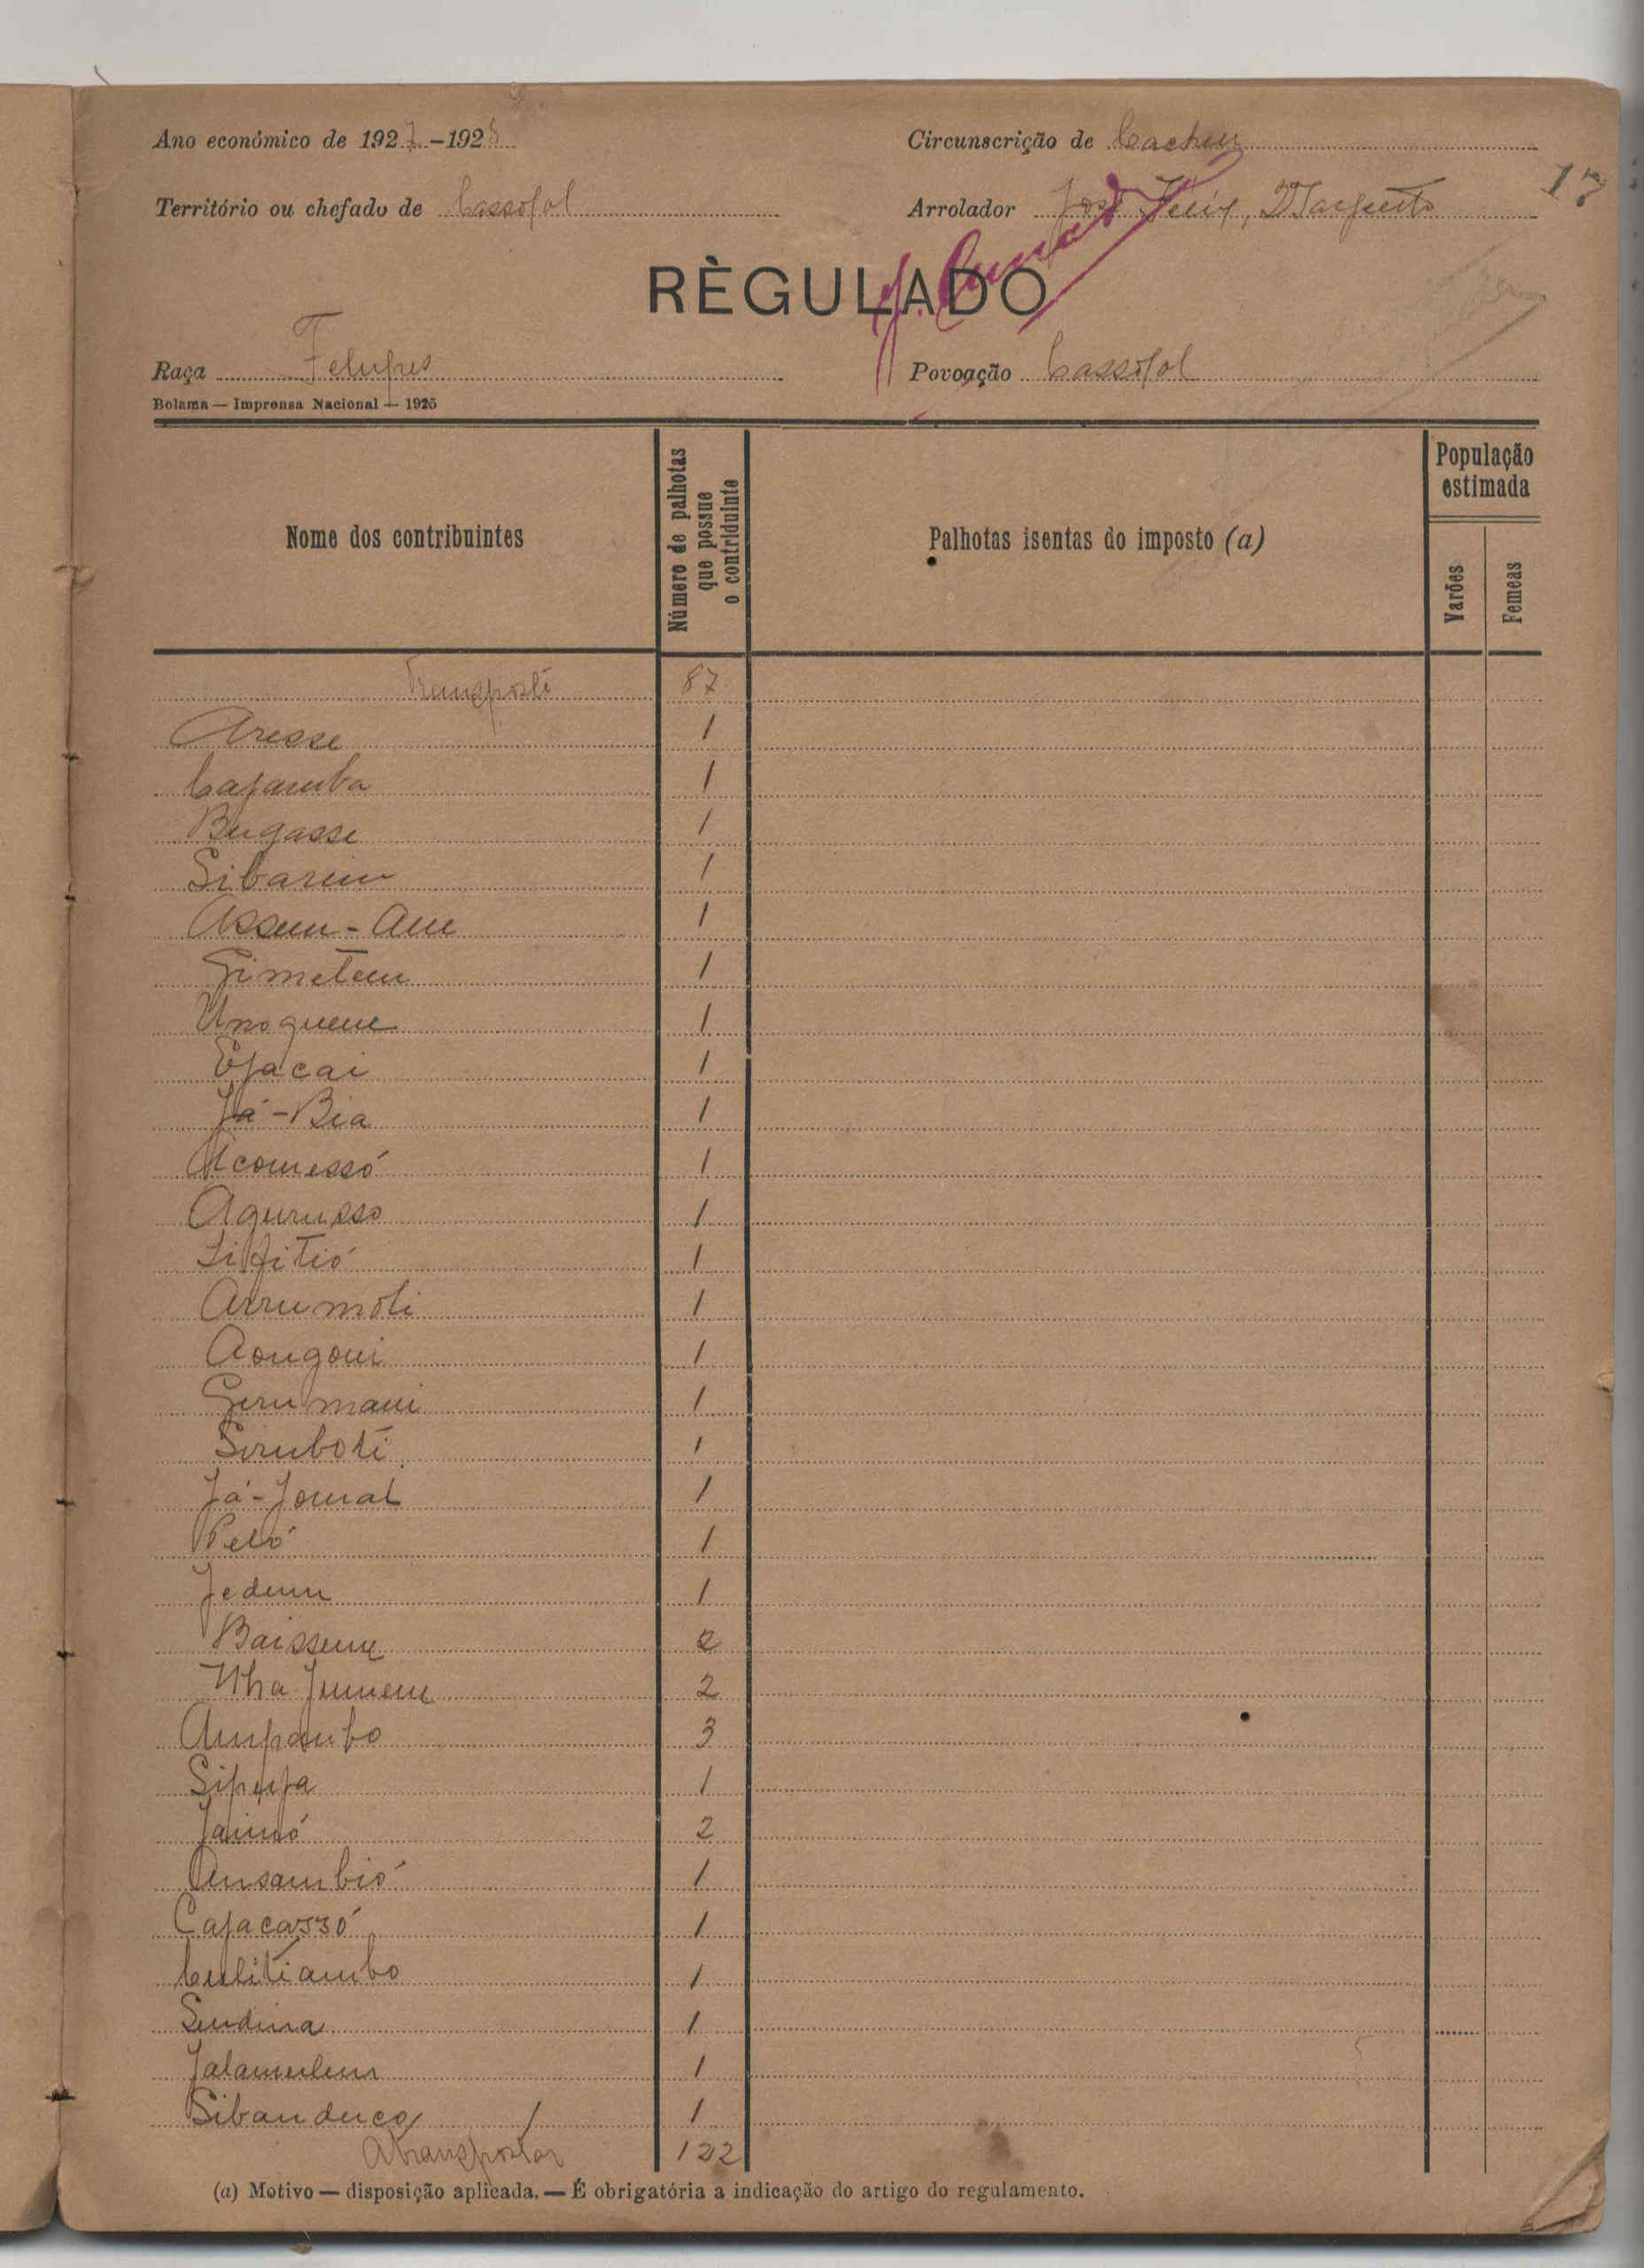 Ano económico de 1927–1928
Circunscrição de Cacheu
17
Território ou chefado de Cassolol
Arrolador José Felix, 2º Sargento
RÈGULADO
Raça Felupes
Povoação Cassolol
Bolama — Imprensa Nacional — 1925
Nome dos contribuintes
Número de palhotas que possue o contriduinte
Palhotas isentas do imposto (a)
População estimada
Varões
Femeas
Transporte 87
Aresse 1
Cajamba 1
Bugasse 1
Sibarim 1
Assem-Ame 1
Gimetem 1
Unoquene 1
Ejacai 1
Já-Bia 1
Acomessó 1
Agurusso 1
1
Arrumoli 1
Aongoni 1
Gerumani 1
Siruboti 1
Já-Jomal 1
Peló 1
Jedum 1
Baisseme 2
Nha Jumem 2
Ampambo 3
1
2
Ansambió 1
Cajacassó 1
Culitiambo 1
Sendina 1
Jalamulem 1
Sibanduca 1
A transportar 122
(a) Motivo — disposição aplicada. — É obrigatória a indicação do artigo do regulamento.